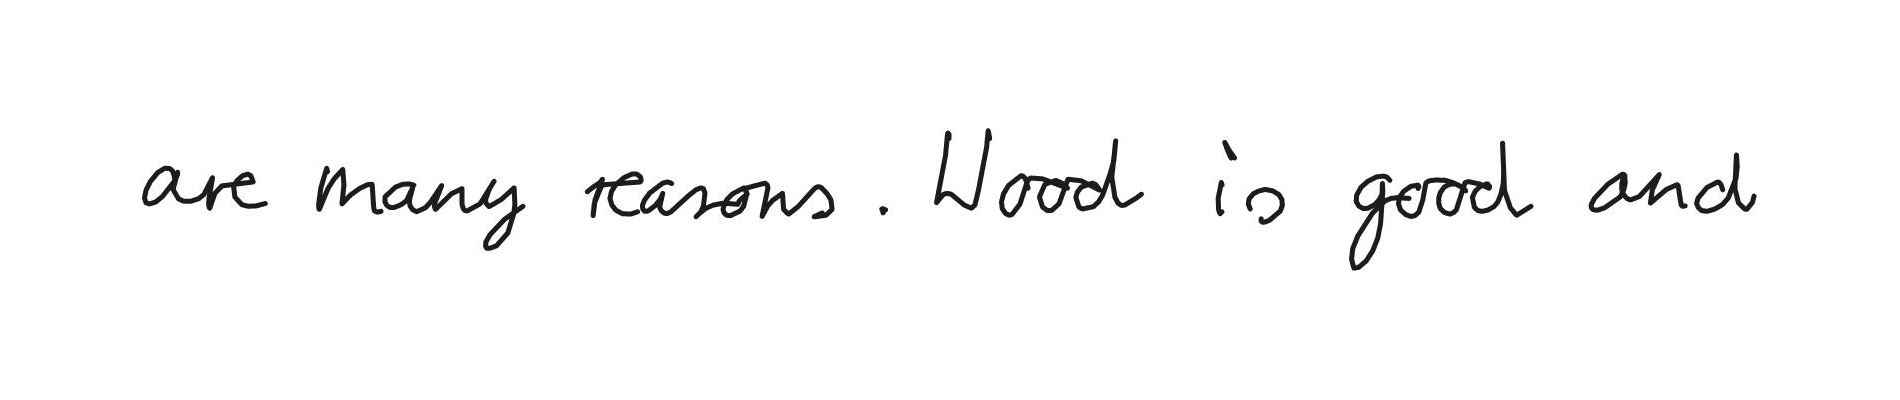 are many reasons. Wood is good and